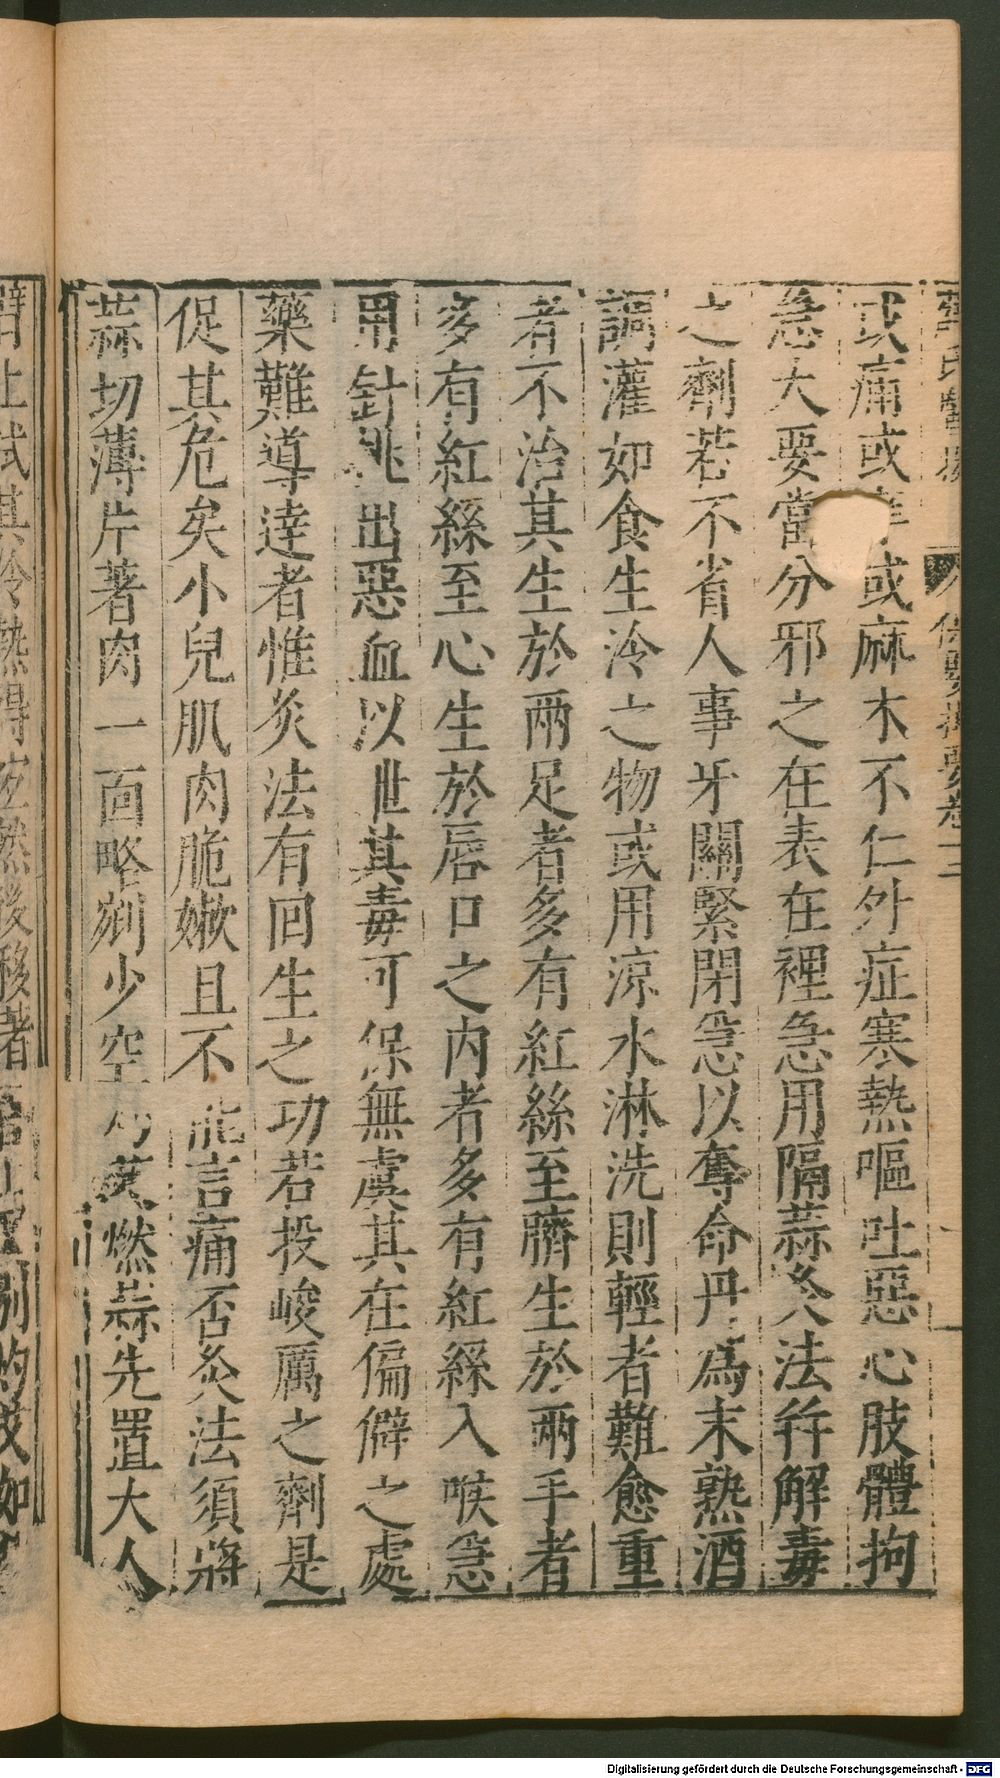 薛氏醫按 保嬰撮要卷十二
或痛或痒或麻木不仁外症寒熱嘔吐惡心肢體拘
急大要當分邪之在表在裡急用隔蒜灸法幷解毒
之劑若不省人事牙關緊閉急以奪命丹為末熟酒
調灌如食生冷之物或用涼水淋洗則輕者難愈重
者不治其生於兩足者多有紅絲至臍生於兩手者
多有紅絲至心生於唇口之內者多有紅絲入喉急
用針挑出惡血以泄其毒可保無虞其在偏僻之處
藥難導達者惟灸法有回生之功若投峻厲之劑是
促其危矣小兒肌肉脆嫩且不能言痛否灸法須將
蒜切薄片著肉一面略剜少空灼艾燃蒜先置大人
臂上試其冷熱得宜然後移著
Digitalisierung gefördert durch die Deutsche Forschungsgemeinschaft - DFG